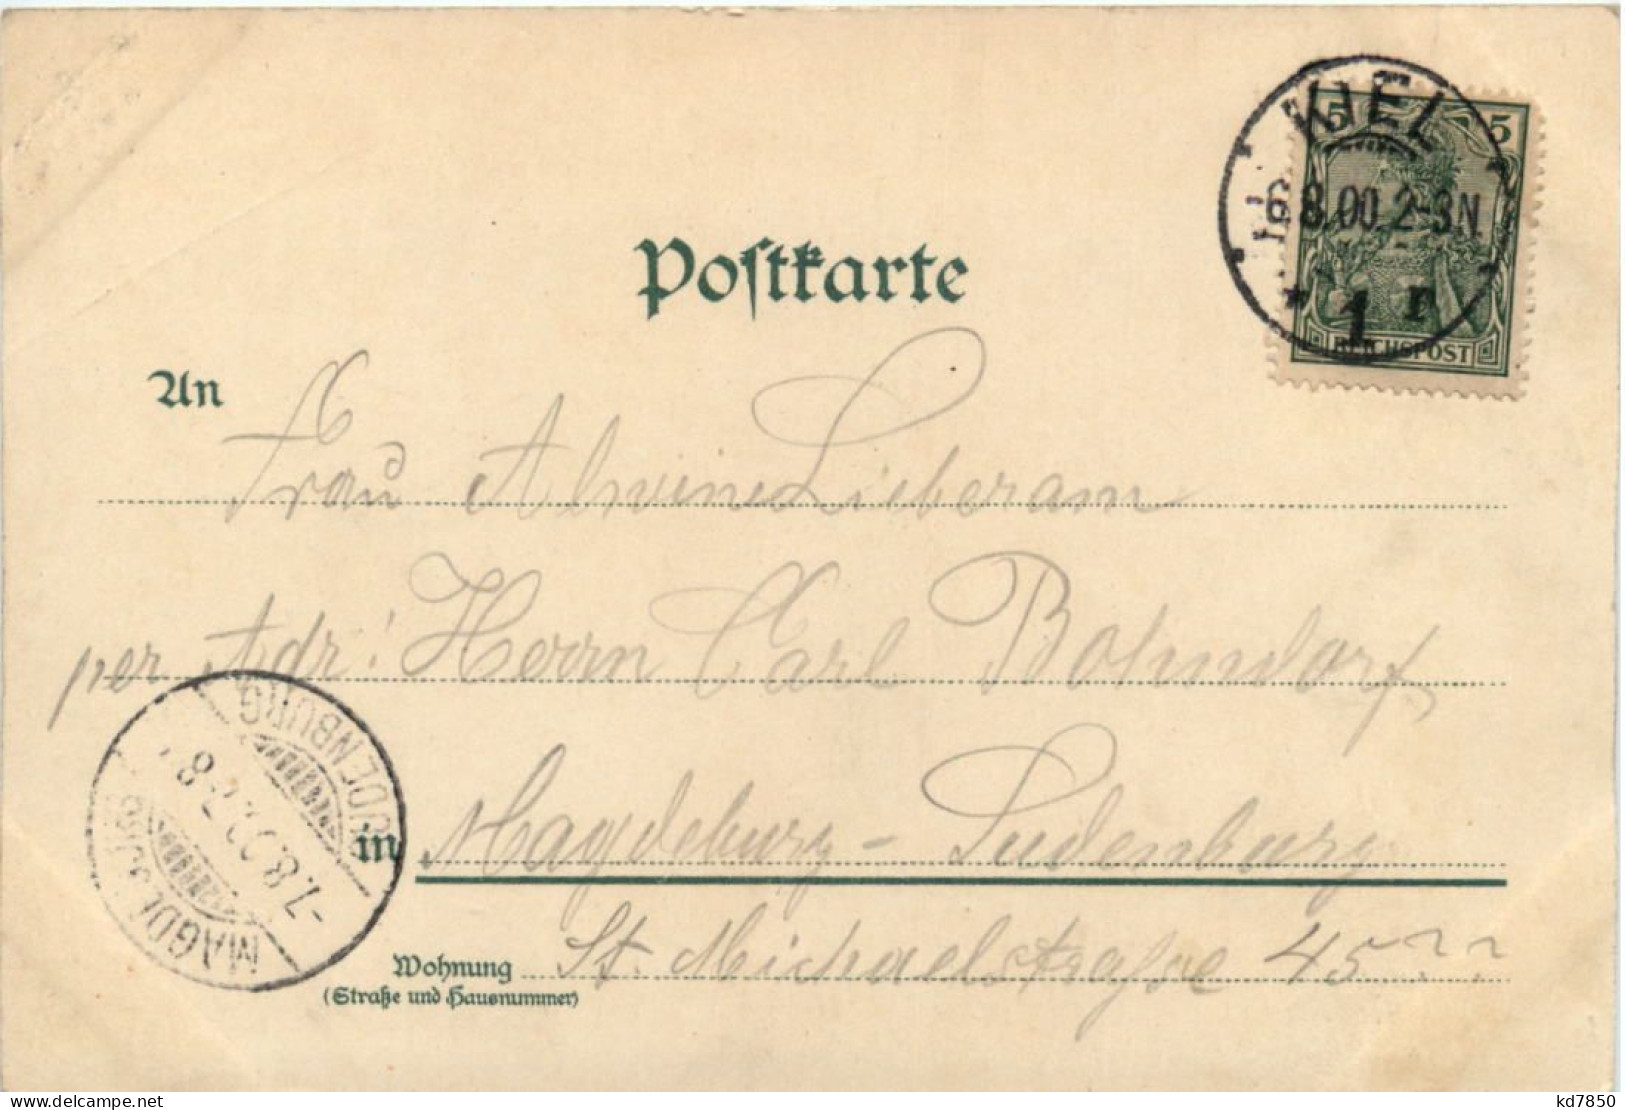 KIEL
6.8.00.2-3N.
* 1 r
5 5
REICHSPOST
Postkarte
An
Frau Alwine Lieberam
per Adr: Herrn Carl Bohndorf
in Magdeburg - Sudenburg
MAGDEBURG
SUDENBURG
-7.8.00.7-8
Wohnung St. Michaelstraße 45
(Straße und Hausnummer)
www.delcampe.net
kd7850